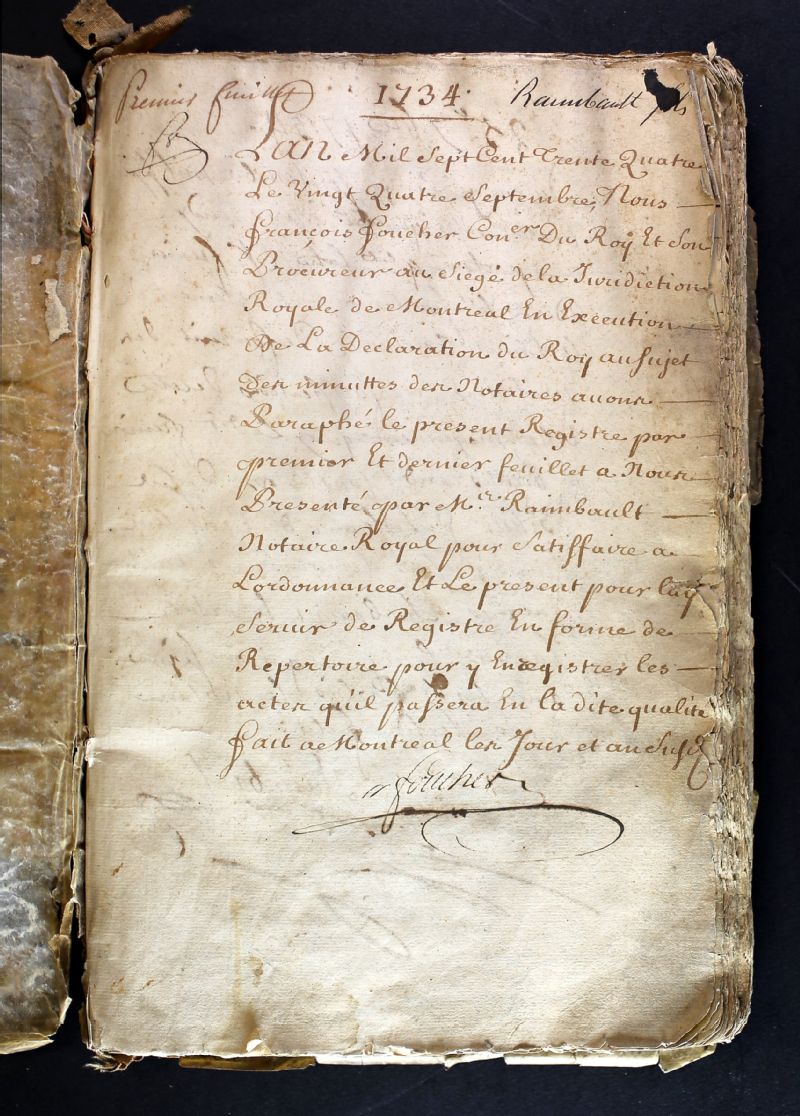 Premier feuillet 1734. Raimbault fils
Lan Mil Sept Cent Trente Quatre
Le Vingt Quatre Septembre, Nous
françois foucher Con.er Du Roy Et Son
Procureur au Siege de la Juridiction
Royale de Montreal En Execution
De La Declaration du Roy au Sujet
Des minuttes des Notaires auons
Paraphé le present Registre par
premier Et dernier feuillet a Nous
Presenté par M.r Raimbault
Notaire Royal pour Satiffaire a
Lordonnance Et Le present pour luy
Seruir de Registre En forme de
Repertoire pour y Enregistrer les
actes qu'il passera En la dite qualité
fait a Montreal les Jour et an Susd
foucher